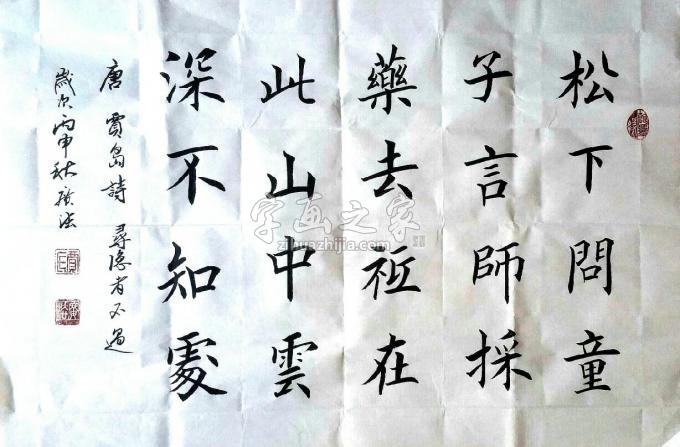 松下問童
子言師採
藥去祗在
此山中雲
深不知處
唐 賈島詩 尋隱者不遇
歲次丙申秋
字画之家
zihuazhijia.com